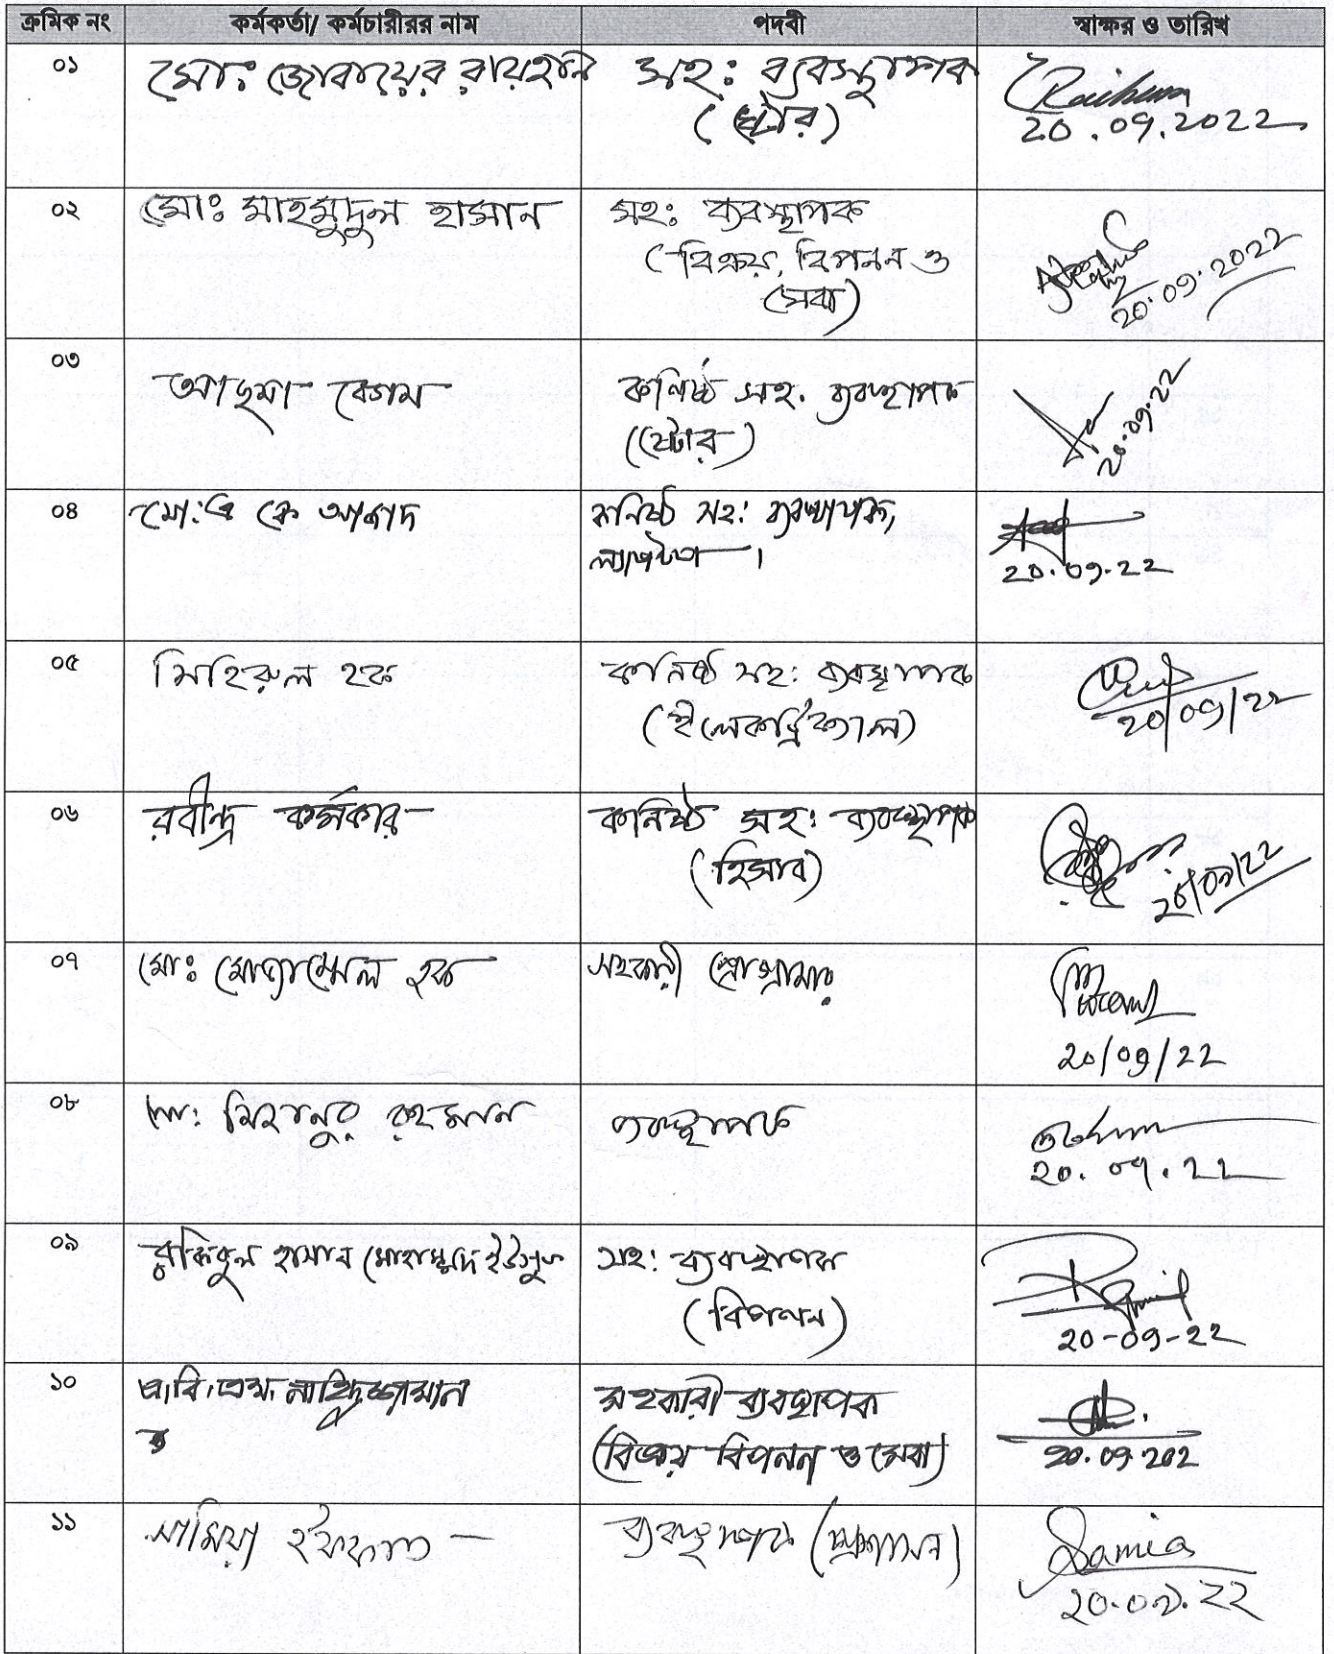 ক্রমিক নং কর্মকর্তা/ কর্মচারীরর নাম পদবী স্বাক্ষর ও তারিখ
০১ মোঃ জোবায়ের রায়হান সহঃ ব্যবস্থাপক
(স্টোর)
Raihan
20.09.2022
০২ মোঃ মাহমুদুল হাসান সহঃ ব্যবস্থাপক
(বিক্রয়, বিপনন ও
সেবা)
20.09.2022
০৩
আছমা বেগম কনিষ্ঠ সহ. ব্যবস্থাপক
(স্টোর)
20.09.22
০৪ মো: এ কে আজাদ কনিষ্ঠ সহ: ব্যবস্থাপক,
ল্যাপটপ।
20.09.22
০৫ মিহিরুল হক কনিষ্ঠ সহ: ব্যবস্থাপক
(ইলেকট্রিক্যাল)
20/09/22
০৬ রবীন্দ্র কর্মকার কনিষ্ঠ সহ: ব্যবস্থাপক
(হিসাব)
20/09/22
০৭ মোঃ মোজাম্মেল হক সহকারী প্রোগ্রামার
20/09/22
০৮ মো: মিজানুর রহমান ব্যবস্থাপক
20.09.22
০৯ রাকিবুল হাসান মোহাম্মদ ইউসুফ সহ: ব্যবস্থাপক
(বিপনন)
20-09-22
১০ এ.বি.এম. সহকারী ব্যবস্থাপক
(বিক্রয় বিপনন ও সেবা)
20.09.202
১১ সামিয়া ইফফাত ব্যবস্থাপক (প্রশাসন)
Samia
20.09.22